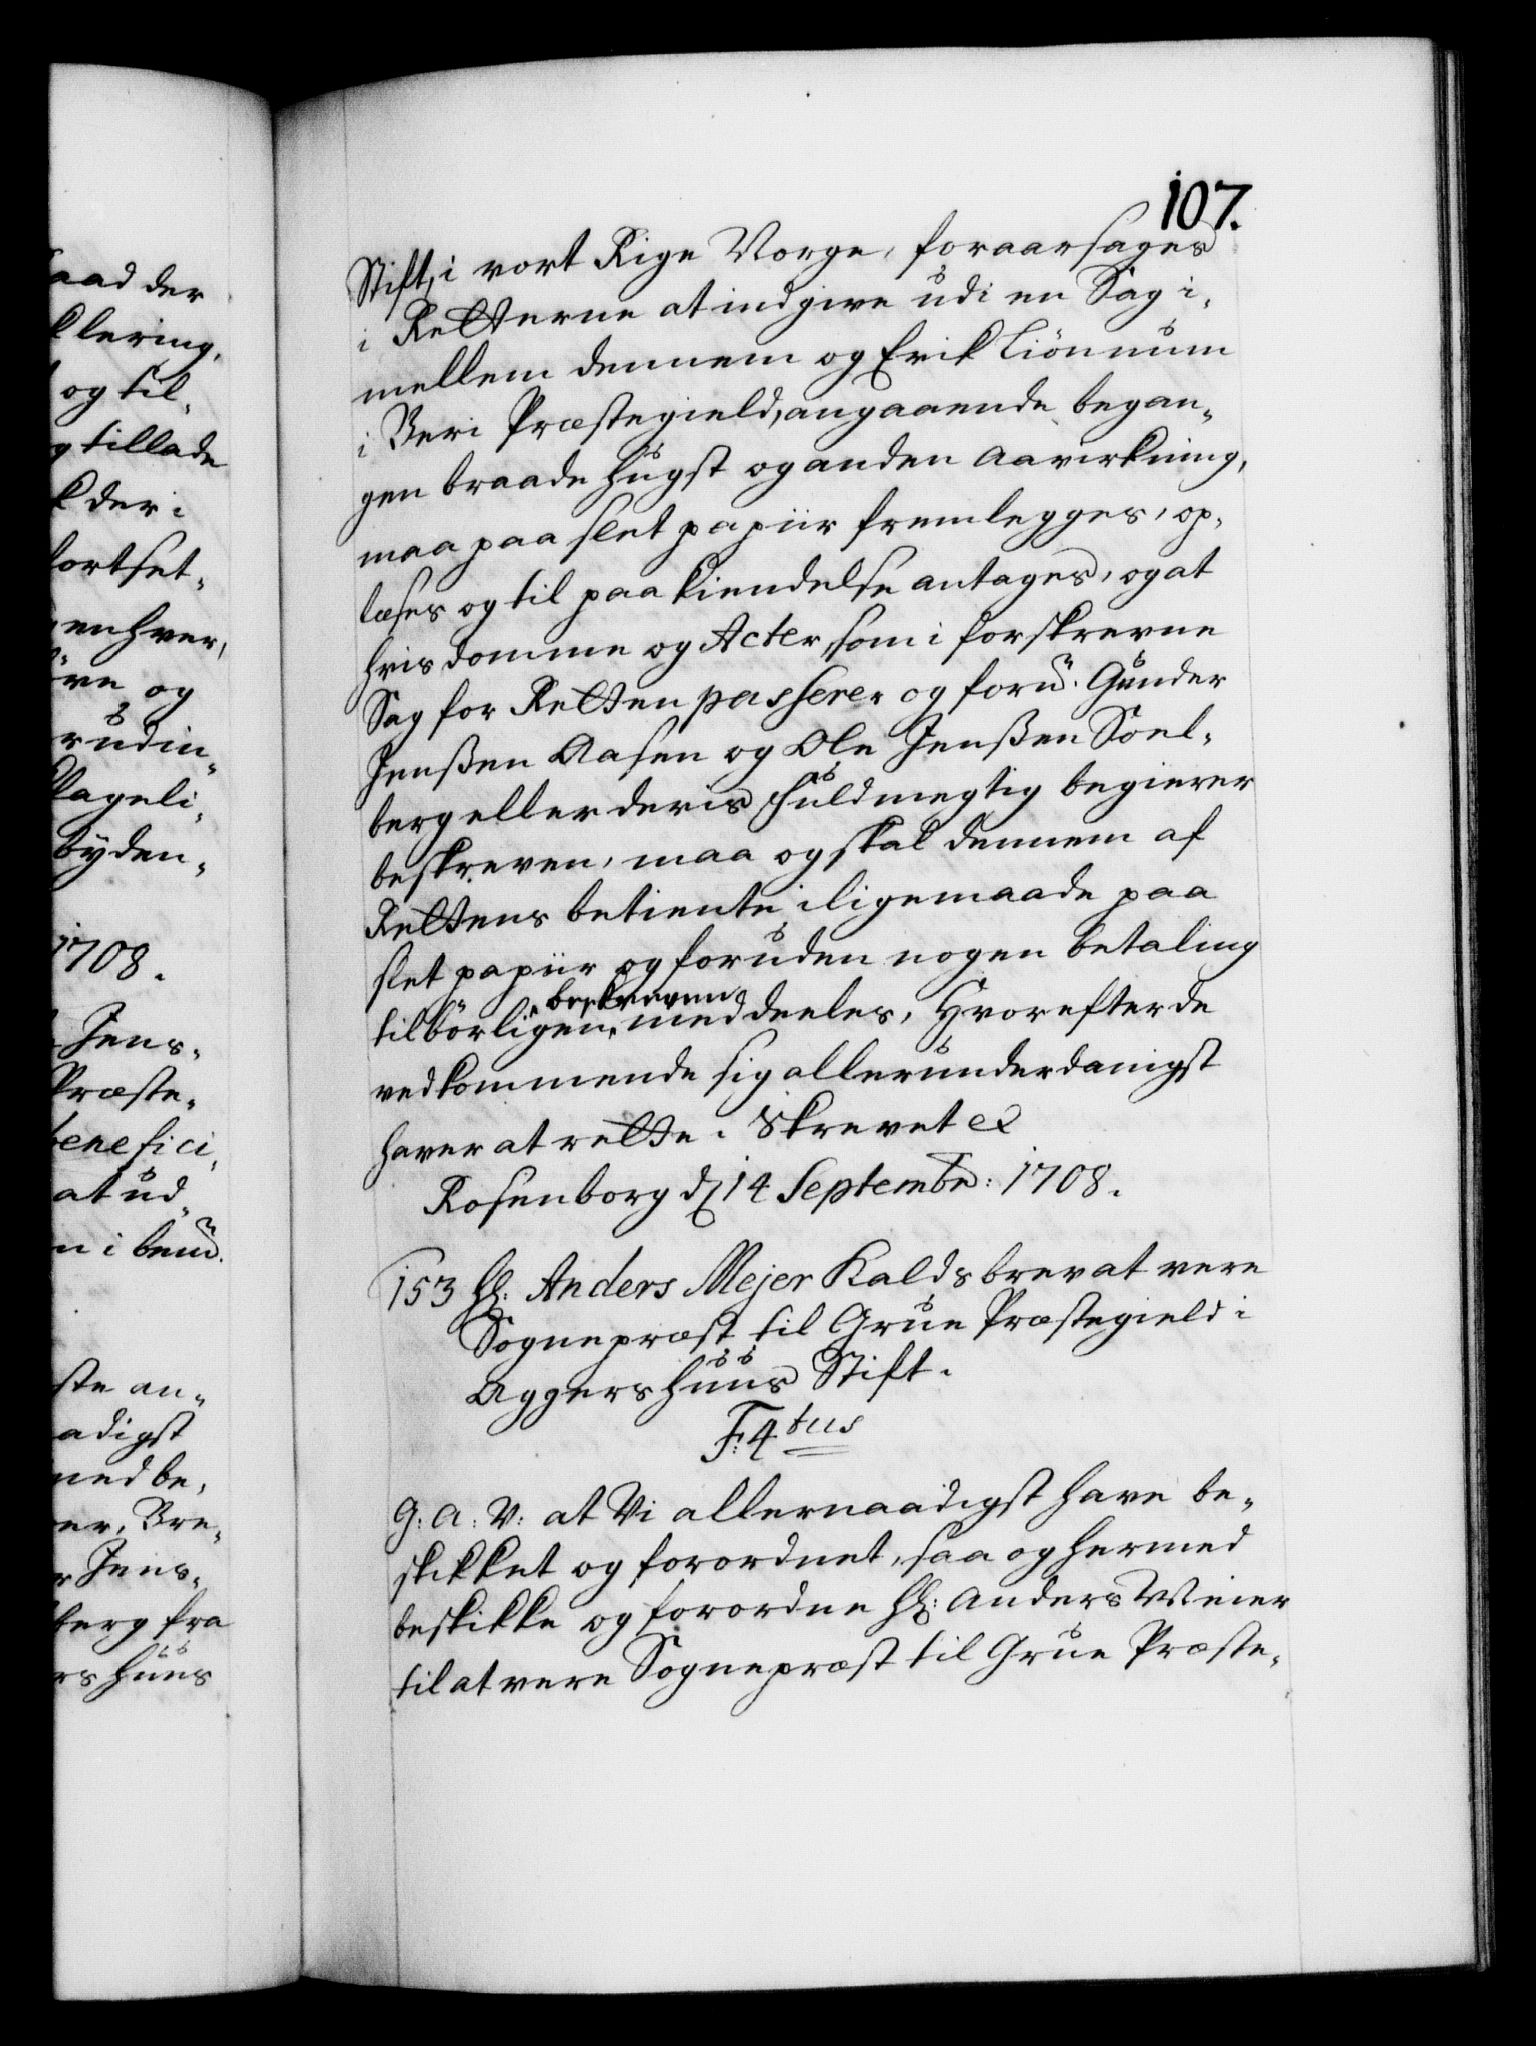 107.
Stift, i vort Rige Norge, foraarsages
i Retterne at indgive udi en Sag i-
mellem dennem og Erik Liønnum
i Beri Præstegield, angaaende began-
gen braade hugst og anden aavirkning,
maa paa slet papiir fremlegges, op-
læses og til paakiendelse antages, og at
hvis domme og Acter, som i forskrevne
Sag for Retten passerer og forn. Gunder
Jenßen Aasen og Ole Jenßen Soel-
berg eller deris fuldmegtig begierer
beskreven, maa og skal dennem af
Rettens betiente i ligemaade paa
slet papiir og foruden nogen betaling
beskreven
tilbörligen, meddeeles, Hvorefter de
vedkommende sig allerunderdanigst
haver at rette. Skrevet ex
Rosenborg d 14 Septembr: 1708.
153 Hr: Anders Mejer Kaldsbrev at være
Sognepræst til Grue Præstegield i
Aggershuus Stift.
F: 4tus
G: A: V: at Vi allernaadigst have be-
skikket og forordnet, saa og hermed
beskikke og forordne Hr: Anders Meier
til at være Sognepræst til Grue Præste-
aad der
klering,
og til-
g tillade
k der i
fortset-
enhver,
øre og
rudin-
klageli-
byden-
1708.
Jens-
Præste-
benefici-
at ud-
n i bem.
ste an-
aadigst
med be-
er, Bre-
r Jens-
berg fra
rshuus